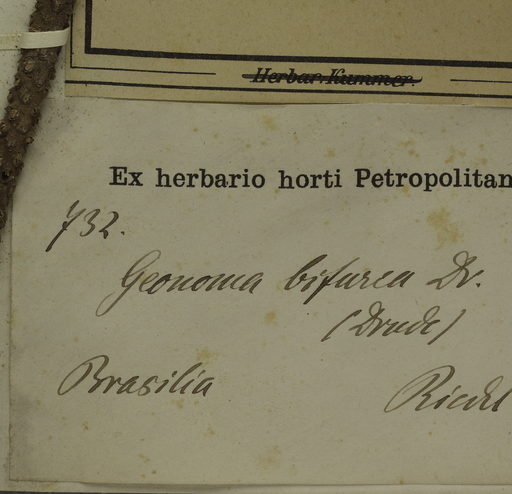 Herbar. Kummer.
Ex herbario horti Petropolitan
732.
Geonoma bifurca Dr.
(Drude)
Brasilia Riedel